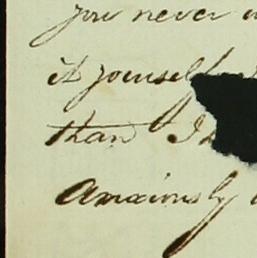 you never
it yourself
than I
Anxiously